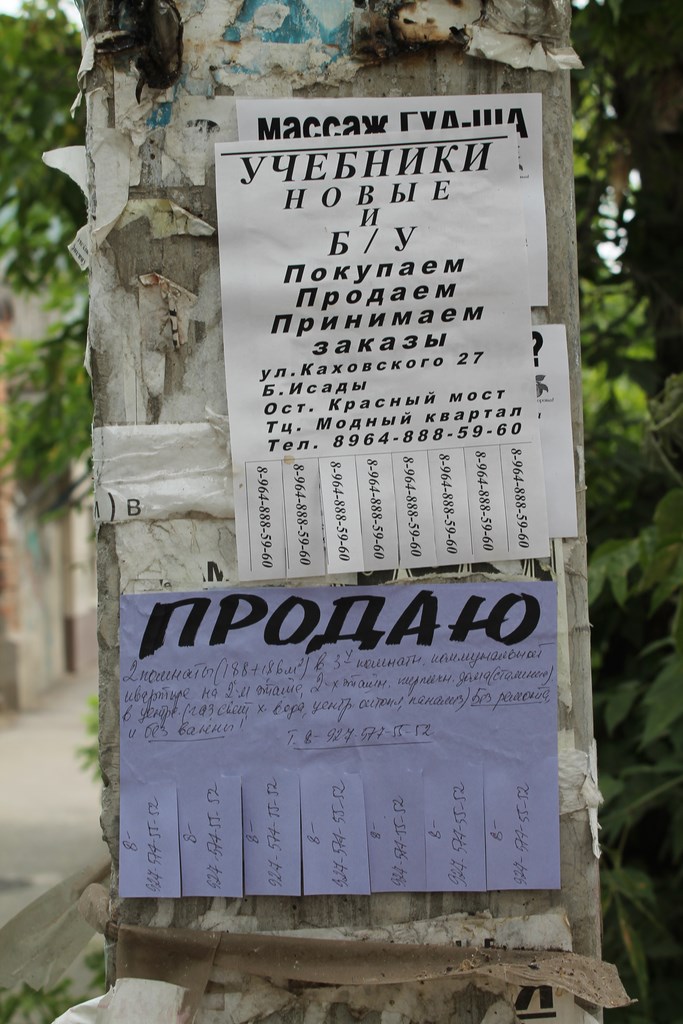 массаж ГУА-ША
УЧЕБНИКИ
НОВЫЕ
И
Б/У
Покупаем
Продаем
Принимаем
заказы
ул.Каховского 27
Б.Исады
Ост. Красный мост
Тц. Модный квартал
Тел. 8964-888-59-60
8-964-888-59-60
8-964-888-59-60
8-964-888-59-60
8-964-888-59-60
8-964-888-59-60
8-964-888-59-60
8-964-888-59-60
8-964-888-59-60
?
) В
ПРОДАЮ
2 комнаты (188+186м²) в 3х комнатн. коммунальной
квартире на 2м этаже, 2-х этажн. кирпичн. дома
в центре (газ свет х вода, центр отопл, канализ) Без ремонта
и без ванны
Т. 8-927-577-55-52
8-
927-574-55-52
8-
927-574-55-52
8-
927-574-55-52
8-
927-574-55-52
8-
927-574-55-52
8-
927-574-55-52
8-
927-574-55-52
Я